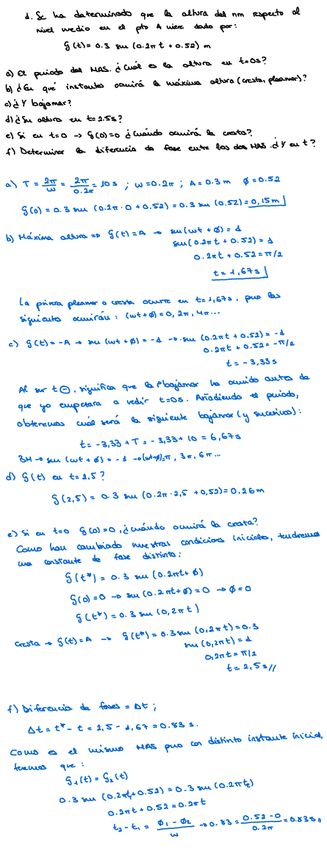 1. Se ha determinado que la altura del nm respecto al
nivel medio en el pto A viene dado por:
ζ(t) = 0.3 sen (0.2πt + 0.52) m
a) El periodo del MAS. ¿Cuál es la altura en t=0s?
b) ¿En qué instante ocurrirá la máxima altura (cresta, pleamar)?
c) ¿Y bajamar?
d) ¿Su altura en t=2.5s?
e) Si en t=0 → ζ(0)=0 ¿Cuándo ocurrirá la cresta?
f) Determinar la diferencia de fase entre los dos MAS. ¿Y en t?
a) T = 2π/ω = 2π/0.2π = 10 s ; ω=0.2π ; A=0.3m ϕ=0.52
ζ(0) = 0.3 sen (0.2π·0 + 0.52) = 0.3 sen (0.52) = 0,15m
b) Máxima altura => ζ(t)=A → sen(ωt + ϕ) = 1
sen(0.2πt + 0.52) = 1
0.2πt + 0.52 = π/2
t = 1,67s
La primera pleamar o cresta ocurre en t=1,67s, pero las
siguientes ocurrirán: (ωt+ϕ) = 0, 2π, 4π...
c) ζ(t) = -A → sen (ωt + ϕ) = -1 → sen (0.2πt + 0.52) = -1
0.2πt + 0.52 = -π/2
t = -3,33s
Al ser t ⊖, significa que la bajamar ha ocurrido antes de
que yo empezara a medir t=0s. Añadiendo el periodo,
obtenemos cuál será la siguiente bajamar (y sucesivas):
t = -3,33 + T = -3,33 + 10 = 6,67s
BM → sen (ωt + ϕ) = -1 → (ωt+ϕ)=π, 3π, 6π...
d) ζ(t) en t=2,5?
ζ(2,5) = 0.3 sen (0.2π·2,5 + 0,52) = 0.26m
e) Si en t=0 ζ(0)=0, ¿cuándo ocurrirá la cresta?
Como han cambiado nuestras condiciones iniciales, tendremos
una constante de fase distinta:
ζ(t*) = 0.3 sen (0.2πt + ϕ)
ζ(0) = 0 → sen (0.2πt + ϕ) = 0 → ϕ=0
ζ(t*) = 0.3 sen (0,2πt)
Cresta → ζ(t)=A → ζ(t*) = 0.3 sen (0,2πt) = 0.3
sen (0,2πt) = 1
0,2πt = π/2
t = 2,5s //
f) Diferencia de fases = Δt ;
Δt = t* - t = 2,5 - 1,67 = 0.83 s.
Como es el mismo MAS pero con distinto instante inicial,
tenemos que :
ζ₁(t) = ζ₂(t)
0.3 sen (0.2πt₁+0.52) = 0.3 sen (0.2πt₂)
0.2πt + 0.52 = 0.2πt
t₂ - t₁ = ϕ₁ - ϕ₂/ω → 0.83 = 0.52 - 0/0.2π = 0.83s //